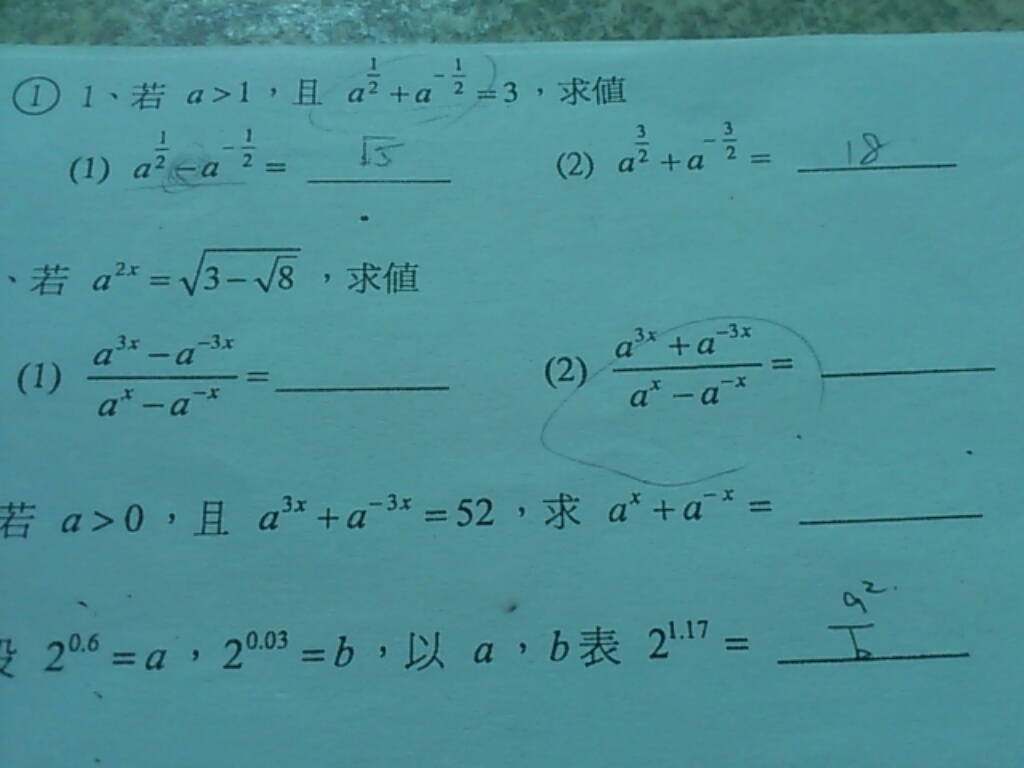 ① 1、若 a>1，且 a^{1/2}+a^{-1/2}=3，求值
(1) a^{1/2}-a^{-1/2}= √5 (2) a^{3/2}+a^{-3/2}= 18
、若 a^{2x}=√(3-√8)，求值
(1) (a^{3x}-a^{-3x})/(a^x-a^{-x})= (2) (a^{3x}+a^{-3x})/(a^x-a^{-x})=
若 a>0，且 a^{3x}+a^{-3x}=52，求 a^x+a^{-x}=
設 2^{0.6}=a，2^{0.03}=b，以 a，b表 2^{1.17}= a²/b